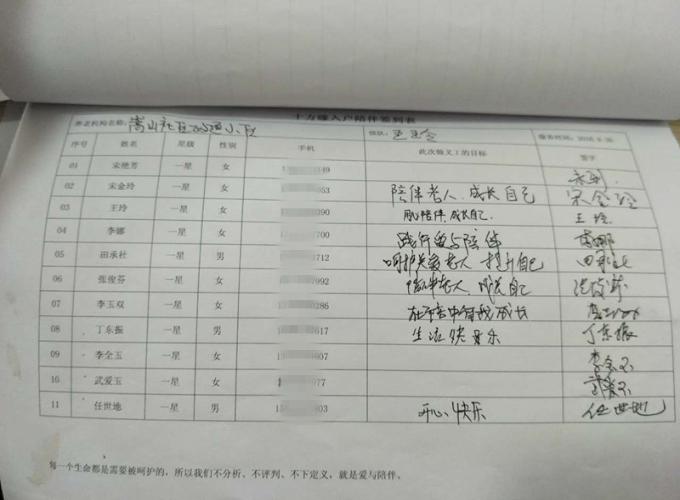 十方缘入户陪伴签到表
养老机构名称: 嵩山社区
序号 姓名 星级 性别 手机 此次做义工的目标 签字
01 宋艳芳 一星 女 349
02 宋金玲 一星 女 353 陪伴老人、成长自己 宋金玲
03 王玲 一星 女 390 陪伴、成长自己 王玲
04 李娜 一星 女 700 践行爱与陪伴 李娜
05 田承社 一星 男 712 呵护关爱老人 提升自己 田承社
06 张俊芬 一星 女 992 陪伴老人、成长自己 张俊芬
07 李玉双 一星 女 286 成长
08 丁东振 一星 男 617 生活快乐 丁东振
09 李全玉 一星 女 607 李全玉
10 武爱玉 一星 女 077 武爱玉
11 任世地 一星 男 303 开心、快乐 任世地
每一个生命都是需要被呵护的，所以我们不分析、不评判、不下定义，就是爱与陪伴。